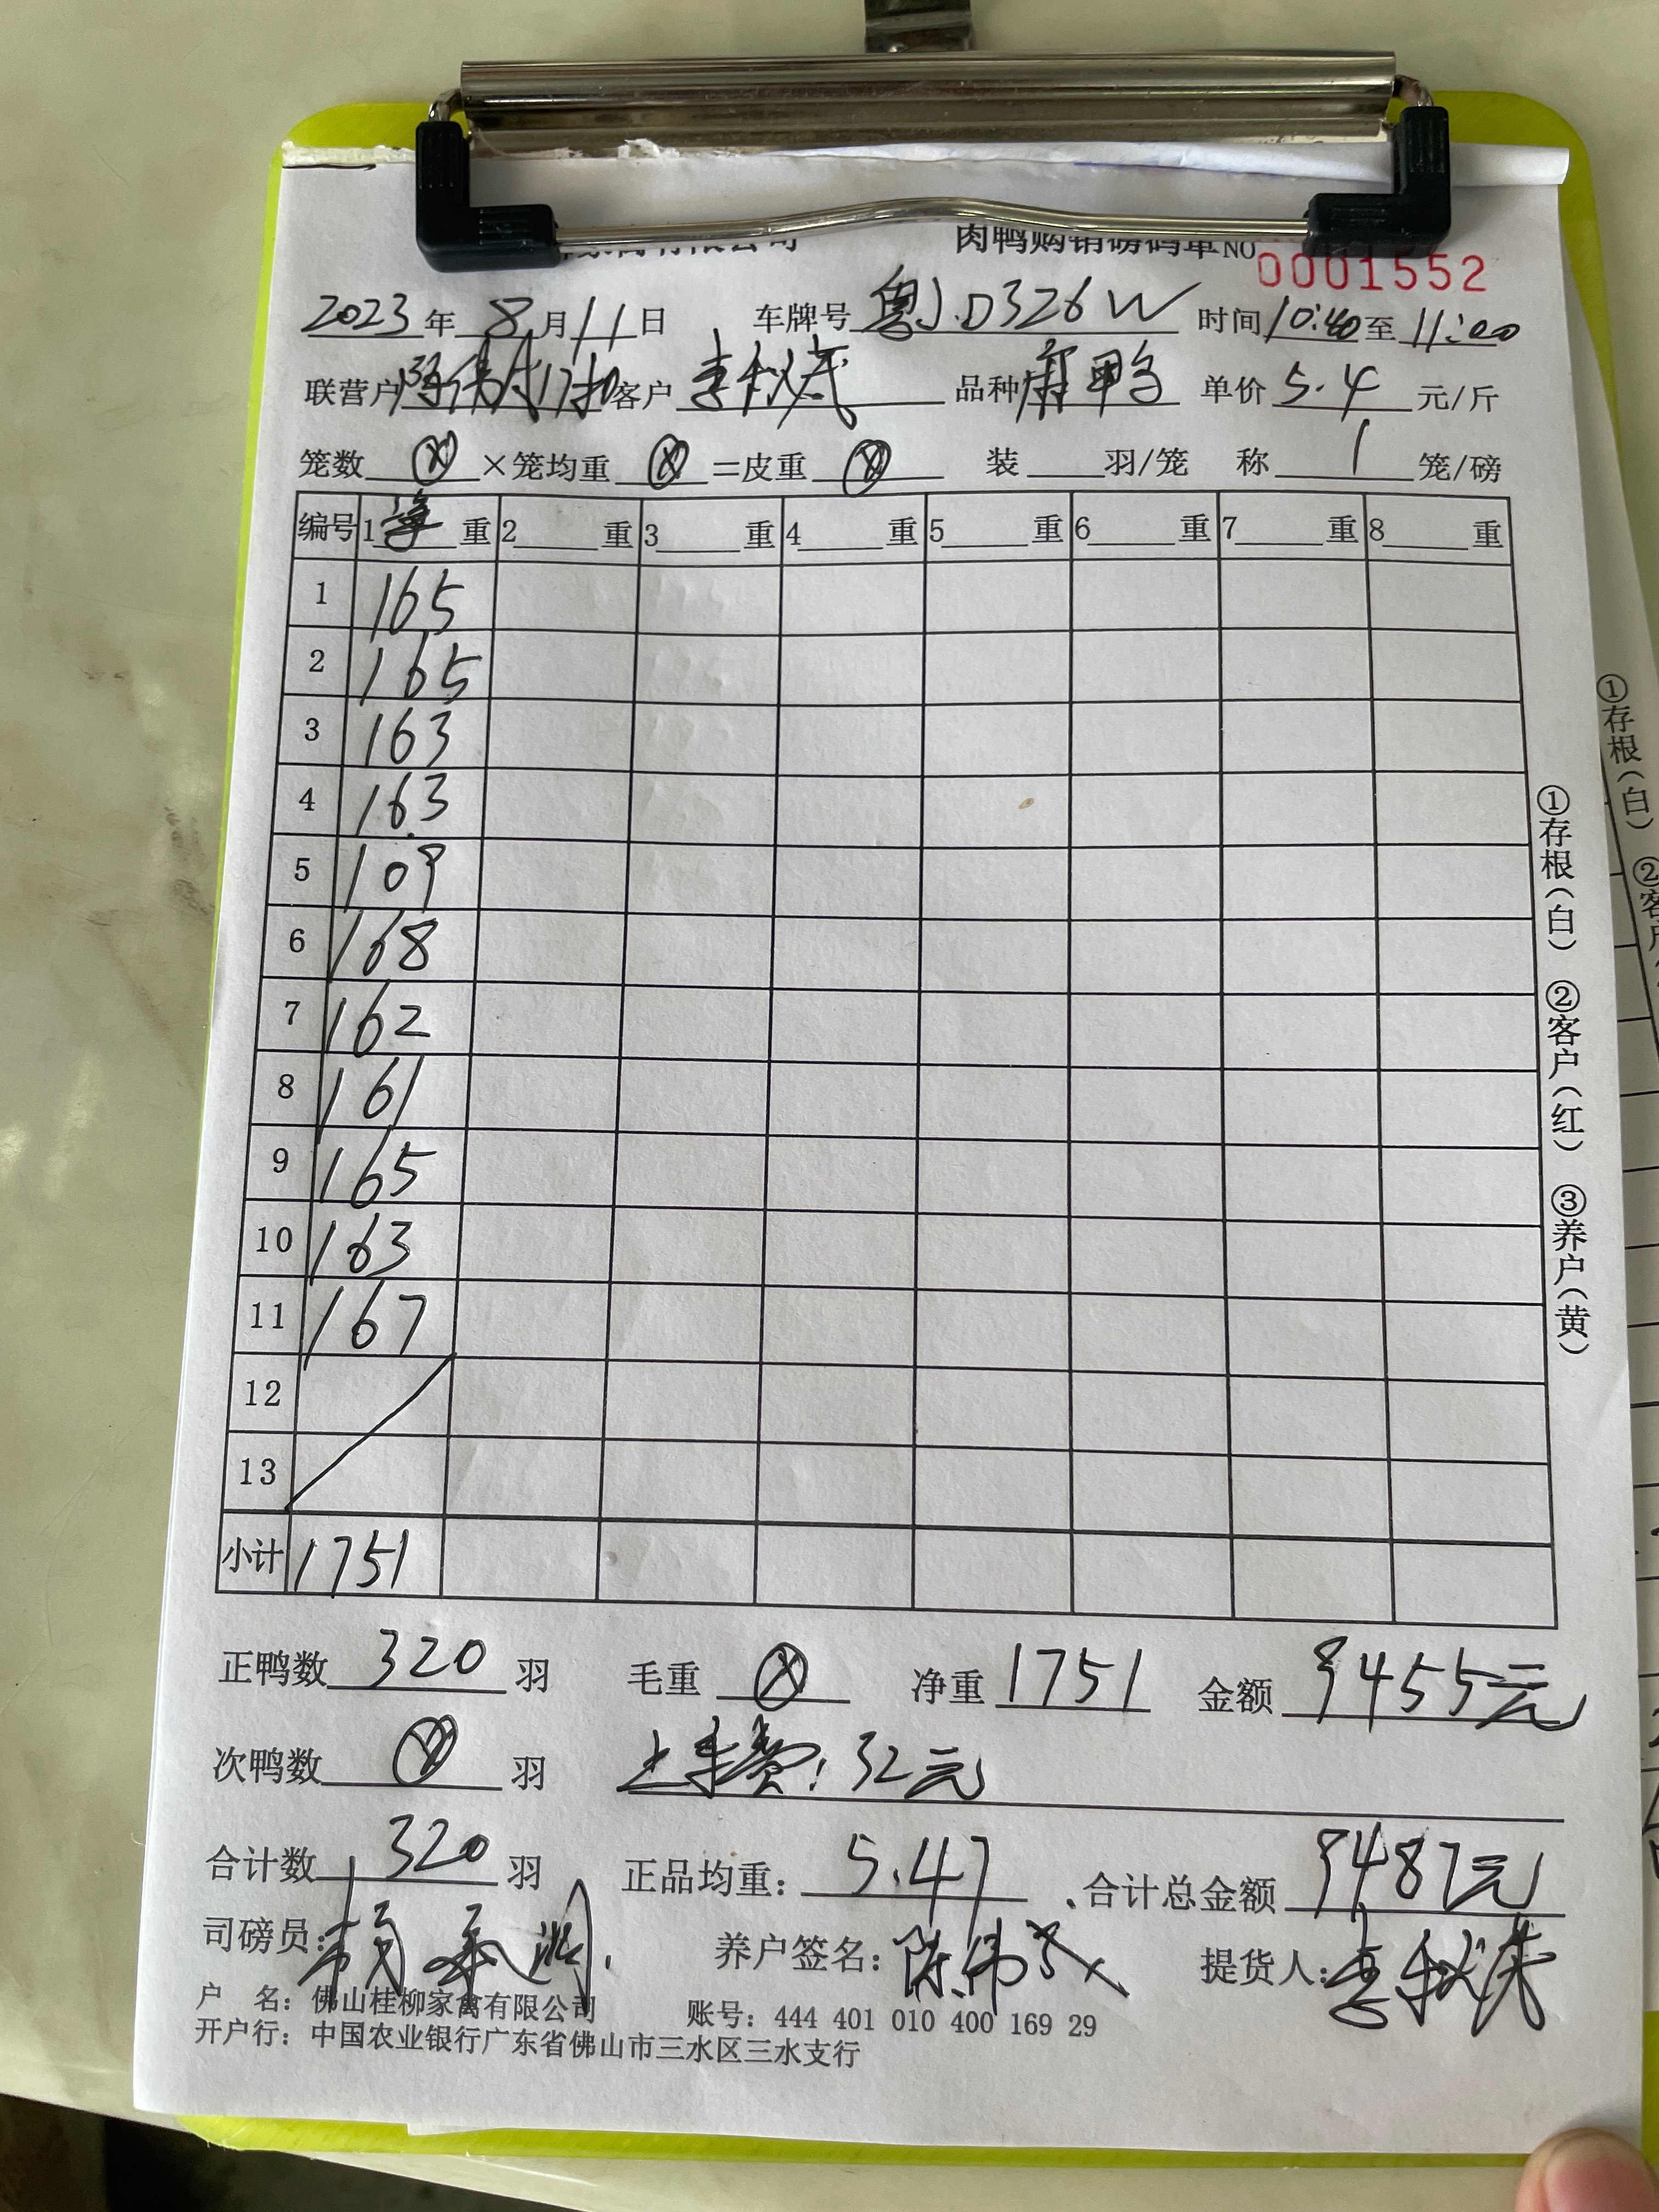 肉鸭购销磅码单 NO 0001552
2023年8月11日 车牌号 粤J.D326W 时间 10:40 至 11:00
联营户 客户 李秋 品种 麻鸭 单价 5.4 元/斤
笼数 ⊗ ×笼均重 ⊗ =皮重 ⊗ 装 羽/笼 称 1 笼/磅
编号 1净重 2 重 3 重 4 重 5 重 6 重 7 重 8 重
1 165
2 165
3 163
4 163
5 109
6 168
7 162
8 161
9 165
10 163
11 167
12
13
小计 1751
正鸭数 320 羽 毛重 ⊗ 净重 1751 金额 9455元
次鸭数 ⊗ 羽 上手费:32元
合计数 320 羽 正品均重: 5.47 合计总金额 9487元
司磅员: 养户签名: 陈伟 提货人: 李秋
户 名: 佛山桂柳家禽有限公司 账号: 444 401 010 400 169 29
开户行: 中国农业银行广东省佛山市三水区三水支行
①存根(白) ②客户(红) ③养户(黄)
①存根(白) ②客户